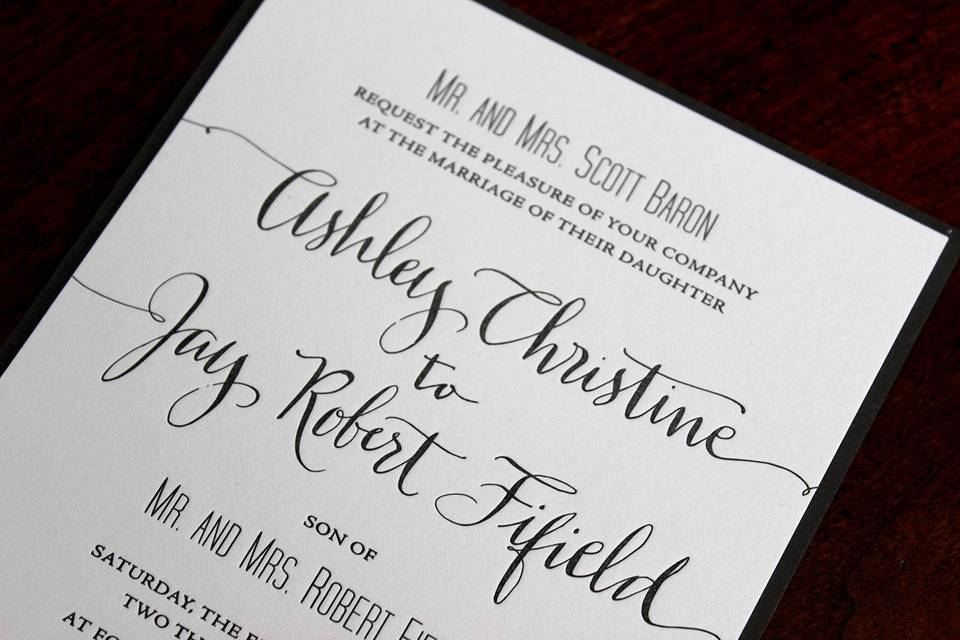 Mr. and Mrs. Scott Baron
REQUEST THE PLEASURE OF YOUR COMPANY
AT THE MARRIAGE OF THEIR DAUGHTER
Ashley Christine
to
Jay Robert Fifield
SON OF
Mr. and Mrs. Robert
SATURDAY, THE
TWO
AT